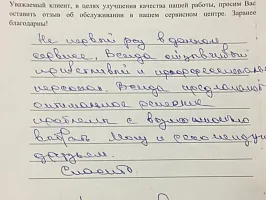 Уважаемый клиент, в целях улучшения качества нашей работы, просим Вас
оставить отзыв об обслуживании в нашем сервисном центре. Заранее
благодарны!
Не первый раз в данном
сервисе, Всегда отзывчивый
приветливый и профессиональный
персонал. Всегда предложат
оптимальное решение
проблемы с возможностью
выбрать Могу и рекомендую
друзьям.
Спасибо